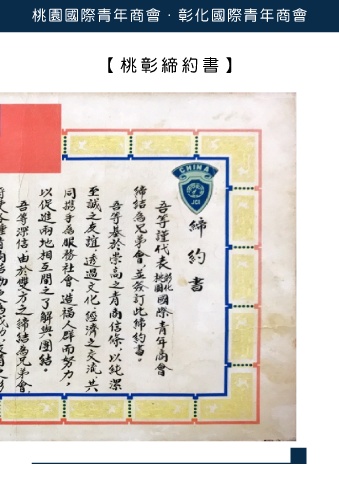 桃園國際青年商會・彰化國際青年商會
【桃彰締約書】
CHINA
JCI
締約書
吾等謹代表彰化桃園國際青年商會
締結為兄弟會，並簽訂此締約書。
吾等基於崇高之青商信條，以純潔
至誠之友誼，透過文化、經濟之交流，共
同攜手為服務社會，造福人群而努力，
以促進兩地相互間之了解與團結。
吾等深信，由於雙方之締結為兄弟會，